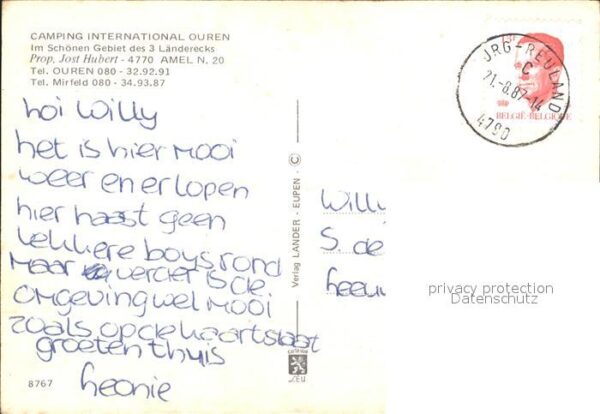 CAMPING INTERNATIONAL OUREN
Im Schönen Gebiet des 3 Länderecks
Prop. Jost Hubert - 4770 AMEL N. 20
Tel. OUREN 080 - 32.92.91
Tel. Mirfeld 080 - 34.93.87
hoi Willy
het is hier mooi
weer en er lopen
hier haast geen
lekkere boys rond
maar verder is de
omgeving wel mooi
zoals op de kaart staat
groeten thuis
Leonie
8767
Verlag LANDER - EUPEN - C
JRG-REULAND
C
21.-8.87-14
4790
BELGIË-BELGIQUE
Willy
S. de
Leeu
privacy protection
Datenschutz